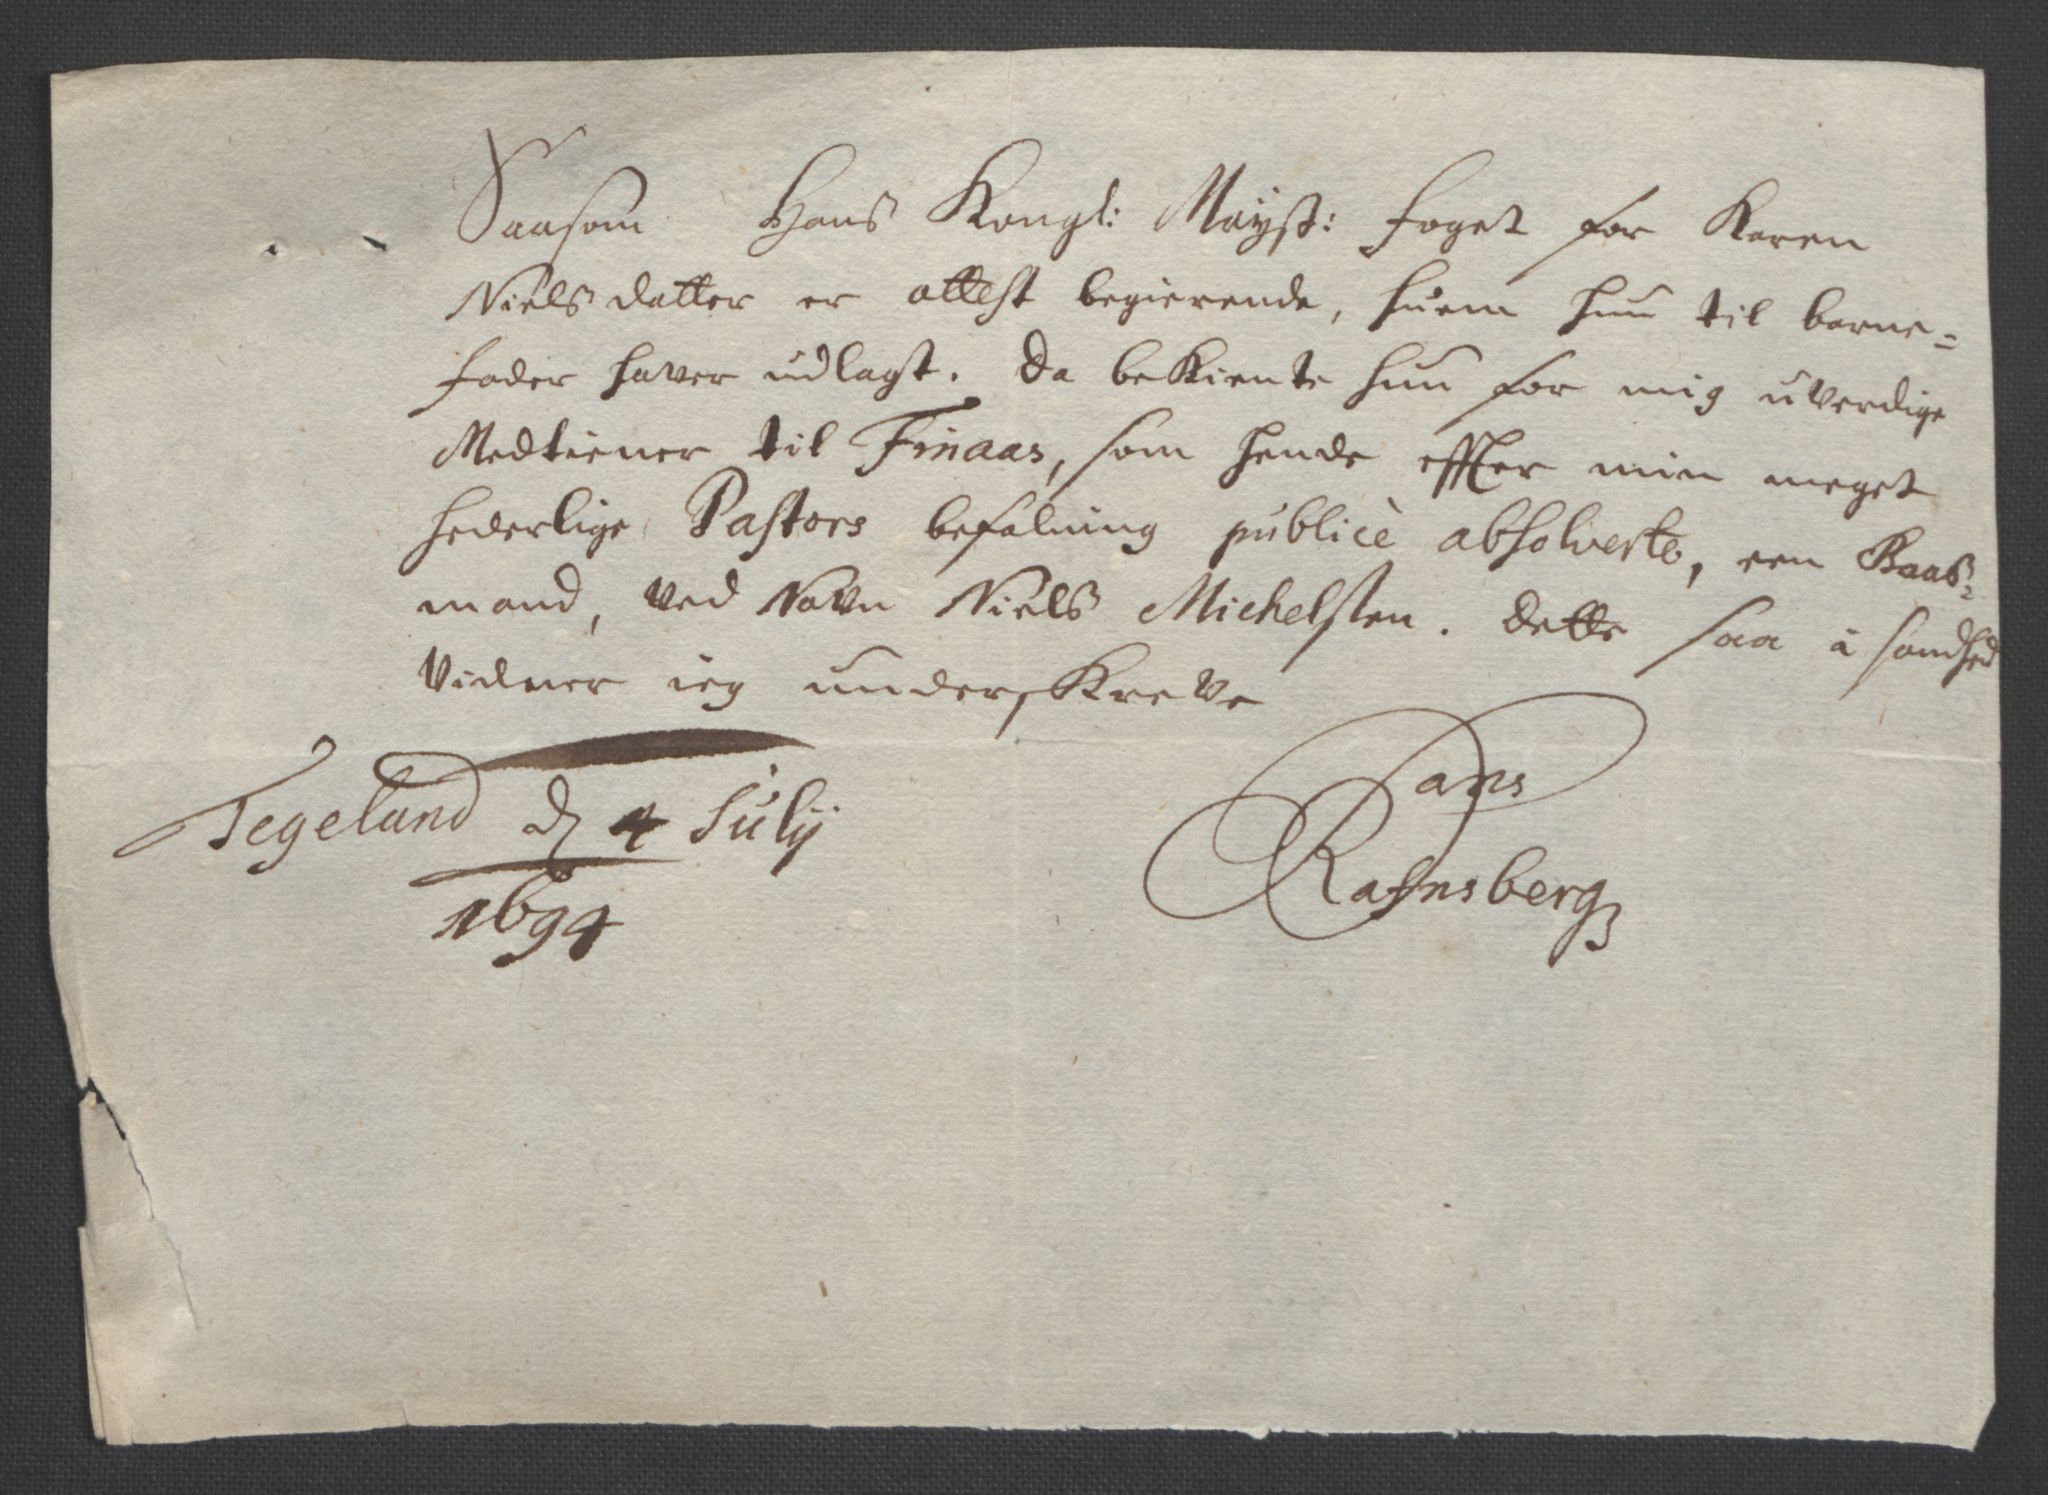 Saasom Hans Kongl: Mayst: foget for Karen
Niels datter er attest begierende, huem hun til barne=
fader haver udlagt. Da bekiente hun for mig uverdige
Medtiener til Finaas, som hende effter min meget
hederlige Pastors befalning publicè absolverte, een Baas=
mand, ved Navn Niels Michelsten. Dette saa i sandhed
vidner ieg underskreve
Tegeland d 4 Julij
1694
Hans
Rafnsberg